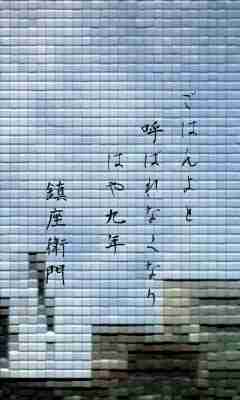 ごはんよと
呼ばれなくなり
はや九年
鎮座衛門